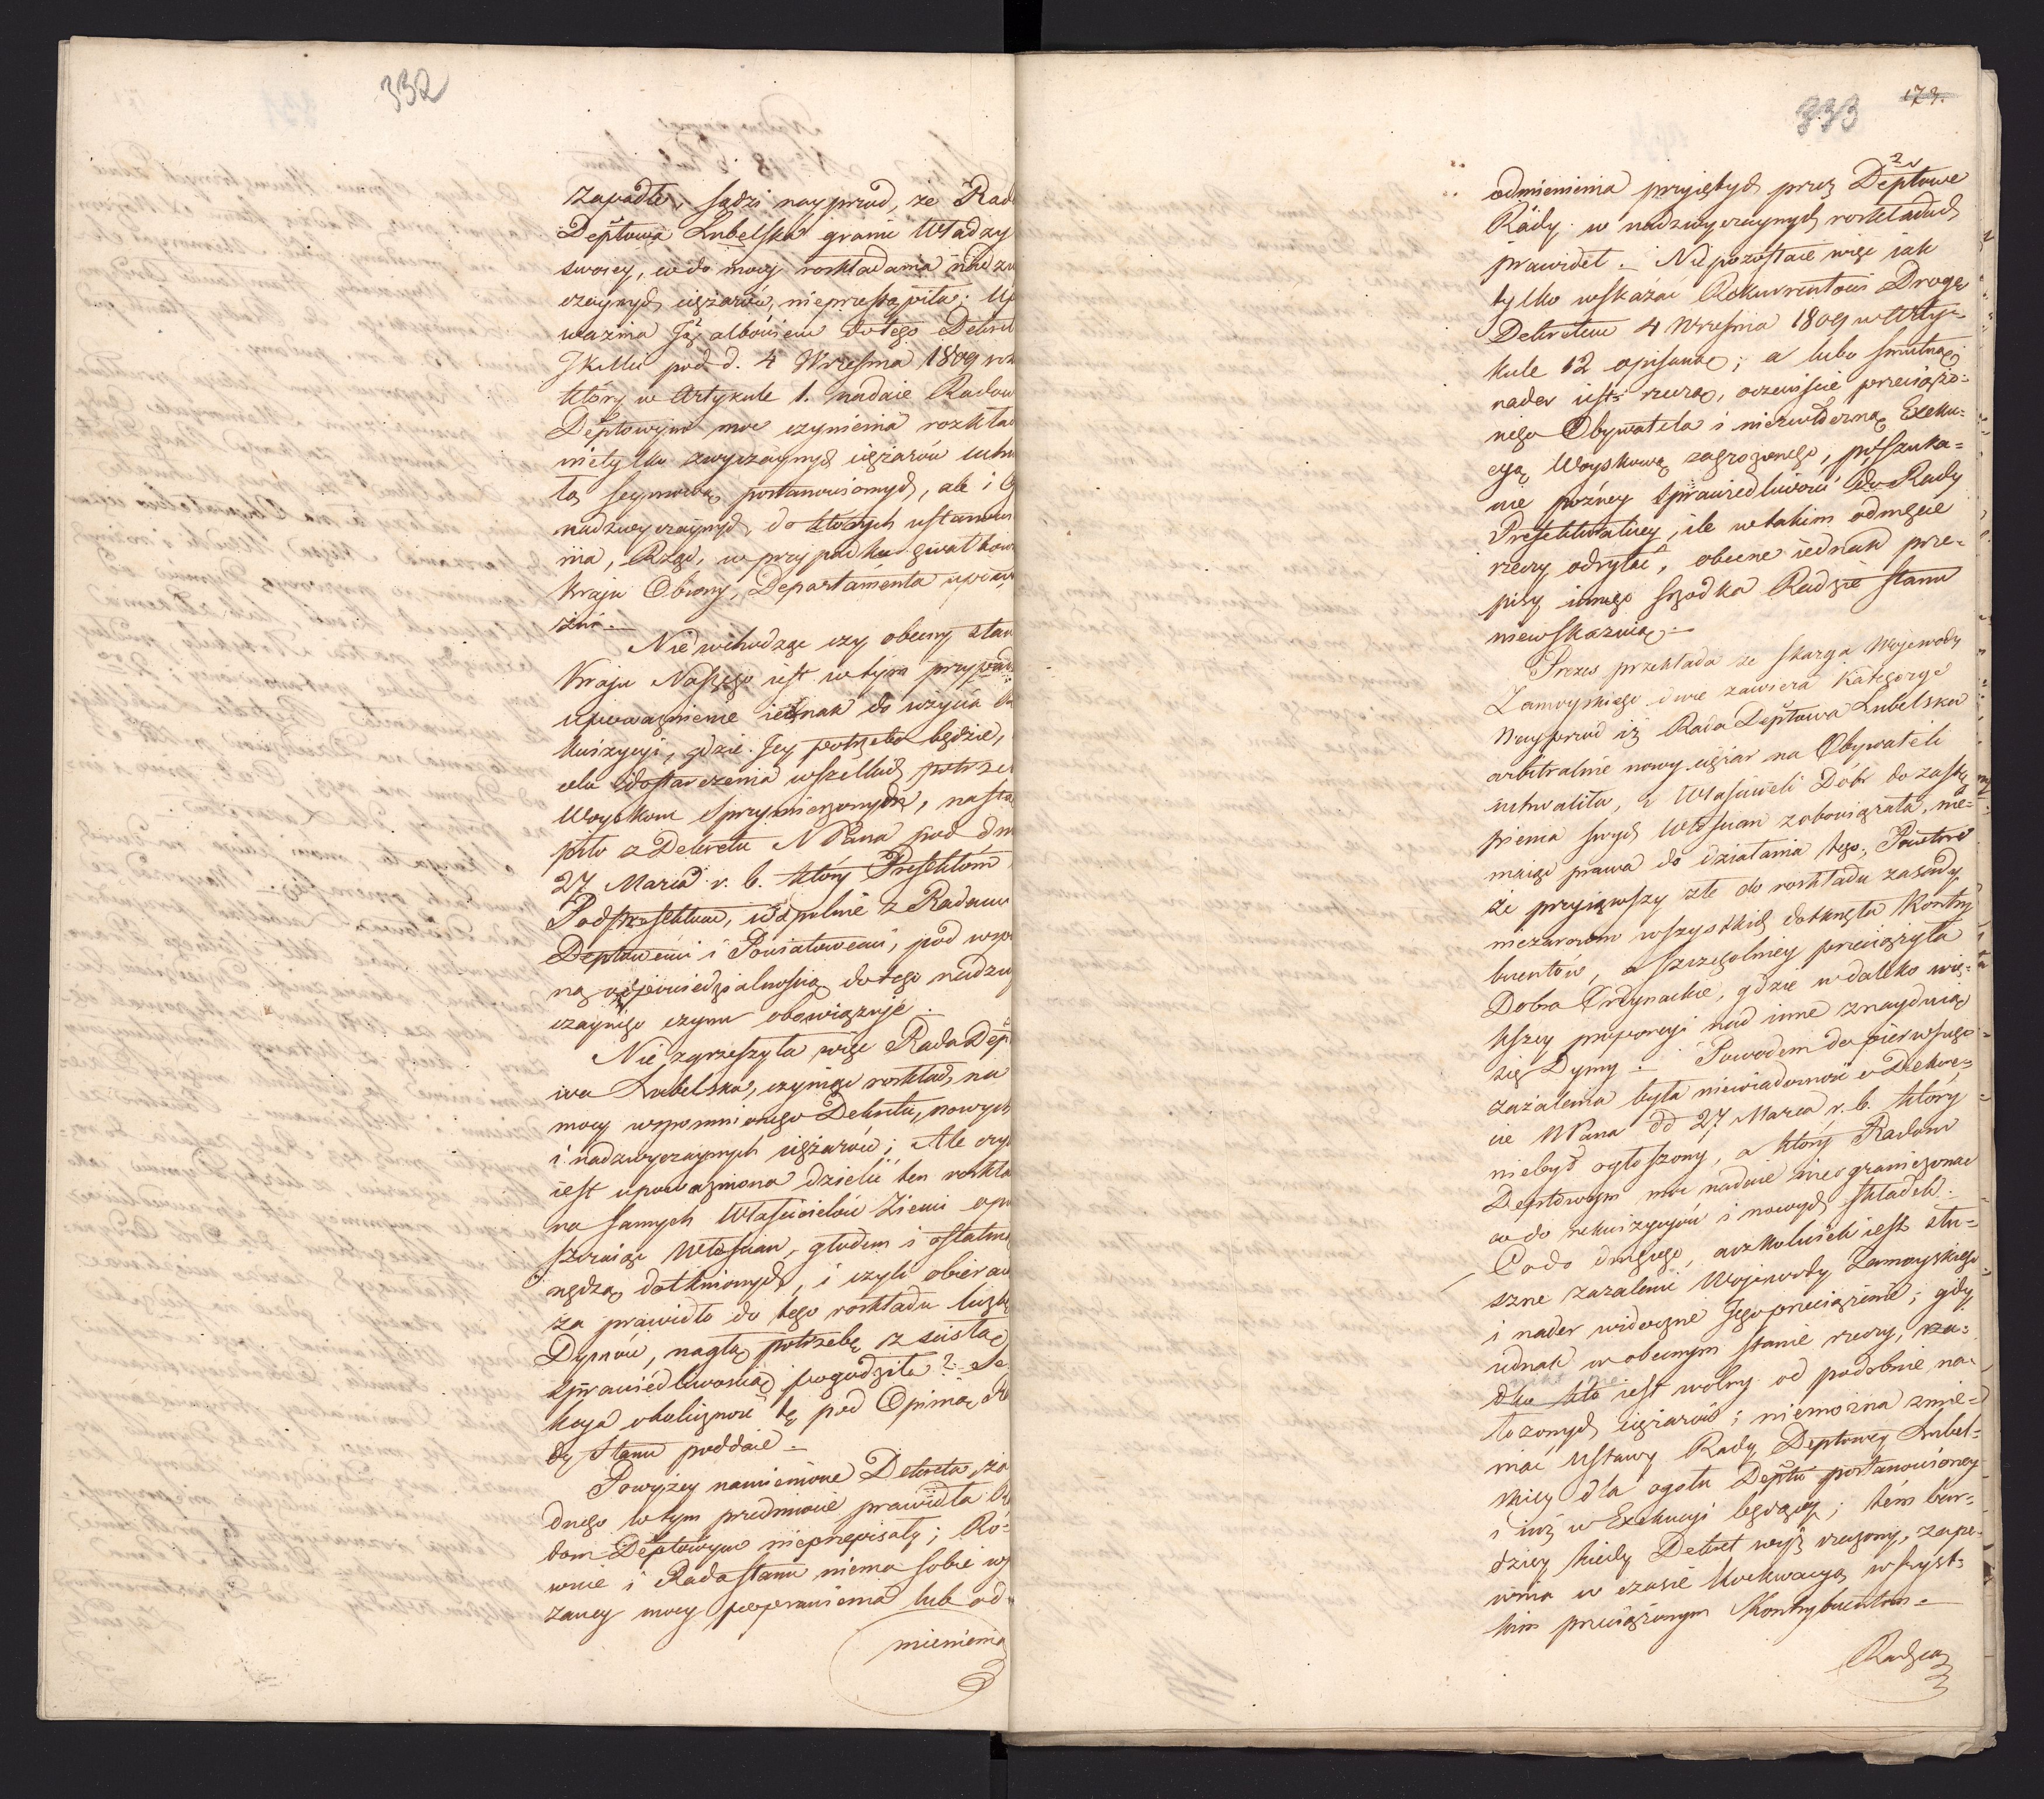 332
zapadłe, sądzi nayprzod, że Rad
Deptowa Lubelska granic Władzy
swoiey, co do mocy roskładania nadzw
czaynych ciężarów, nieprzestąpiła; Up
ważnia Ją albowiem do tego Dekret
JKMci pod d. 4 Września 1809 ro
który w Artykule 1. nadaie Radom
Deptowym moc czynienia rozkład
nietylko zwyczaynych ciężarów uchw
łą seymową postanowionych, ale i
nadzwyczaynych, do których ustanow
nia, Rząd, w przypadku gwałtown
kraju Obrony, Departamenta upowa
żni.
Nie wchodząc czy obecny stan
Kraju Naszego iest w tym przypad
upoważnienie iednak do użycia Re
kwizycyi, gdzie Jey potrzeba będzie,
celu dostarczenia wszelkich potrze
Woyskom Sprzymierzonych, nastą
piło z Dekretu NPana pod dn
27 Marca r. b. który Prefektom
Podprefektom, wspolnie z Radami
Deptowemi i Powiatowemi, pod wspo
ną odpowiedzialnością do tego nadzwy
czaynego czynu obowiązuje.
Nie zgrzeszyła więc Rada Dep
wa Lubelska, czyniąc roskład, na
mocy wspomnionego Dekretu, nowych
i nadzwyczaynych ciężarów; Ale czy
iest upoważniona dzielić ten roskła
na samych Właścicielów Ziemi opu
szczaiąc Włościan, głodem i ostatni
nędzą dotknionych, i czyli obieraią
za prawidło do tego roskładu liczbę
Dymów, nagłą potrzebę z scisłą
sprawiedliwością pogodziła? Se
kcya okoliczność tę pod Opinią Ra
dy Stanu poddaie.
Powyżey namienione Dekreta, ża
dnego w tym przedmiocie prawidła Ra
dom Deptowym nieprzepisały; Ró=
wnie i Rada Stanu niema sobie w
zaney mocy poprawienia lub od
mienienia
333
173.
odmienienia przyiętych przez Deptowe
Rady w nadzwyczaynych roskładach
prawideł. Nie pozostaie więc iak
tylko wskazać Rekurrentowi Drogę
Dekretem 4 Września 1809 w Arty=
kule 12 opisaną; a lubo smutną
nader iest rzeczą, oczewiście przeciążo=
nego Obywatela i niezwłoczną Exeku=
cyą Woyskową zagrożonego, po szuka=
nie pozney sprawiedliwości do Rady
Prefekturalney, ile w takim odmęcie
rzeczy odsyłać, obecne iednak prze=
pisy innego srzodka Radzie Stanu
niewskazuią.
Prezes przekłada że skarga Wojewody
Zamoyskiego dwie zawiera kategorye
Nayprzod iż Rada Deptowa Lubelska
arbitralnie nowy ciężar na Obywateli
uchwaliła, i Właścicieli Dóbr do zastą
pienia swych Włościan zobowiązała, nie=
maiąc prawa do działania tego; Powtore
że przyiąwszy złe do roskładu zasady,
niezarowno wszystkich dotknęła Kontry
buentów, a szczegolniey przeciążyła
Dobra Ordynackie, gdzie w daleko wię=
kszey proporcyi nad inne znayduią
się Dymy. Powodem do pierwszego
zażalenia była niewiadomość o Dekre=
cie NPana dd 27 Marca r. b. który
niebył ogłoszony, a który Radom
Deptowym moc nadaie nieograniczoną
co do rekwizycyów i nowych składek.
Co do drugiego, aczkolwiek iest słu=
szne zażalenie Wojewody Zamoyskiego
i nader widoczne Jego przeciążenie; gdy
iednak w obecnym stanie rzeczy, rza=
dko kto iest wolny od podobnie na=
łożonych ciężarów; niemożna zmie=
niać Ustawy Rady Deptowey Lubel=
skiey dla ogołu Deptu postanowioney
i iuż w Exekucyi będącey; tém bar=
dziey kiedy Dekret wyż rzeczony, zape=
wnia w czasie koekwacyą wszyst=
kim przeciążonym Kontrybuentom.
Radzca